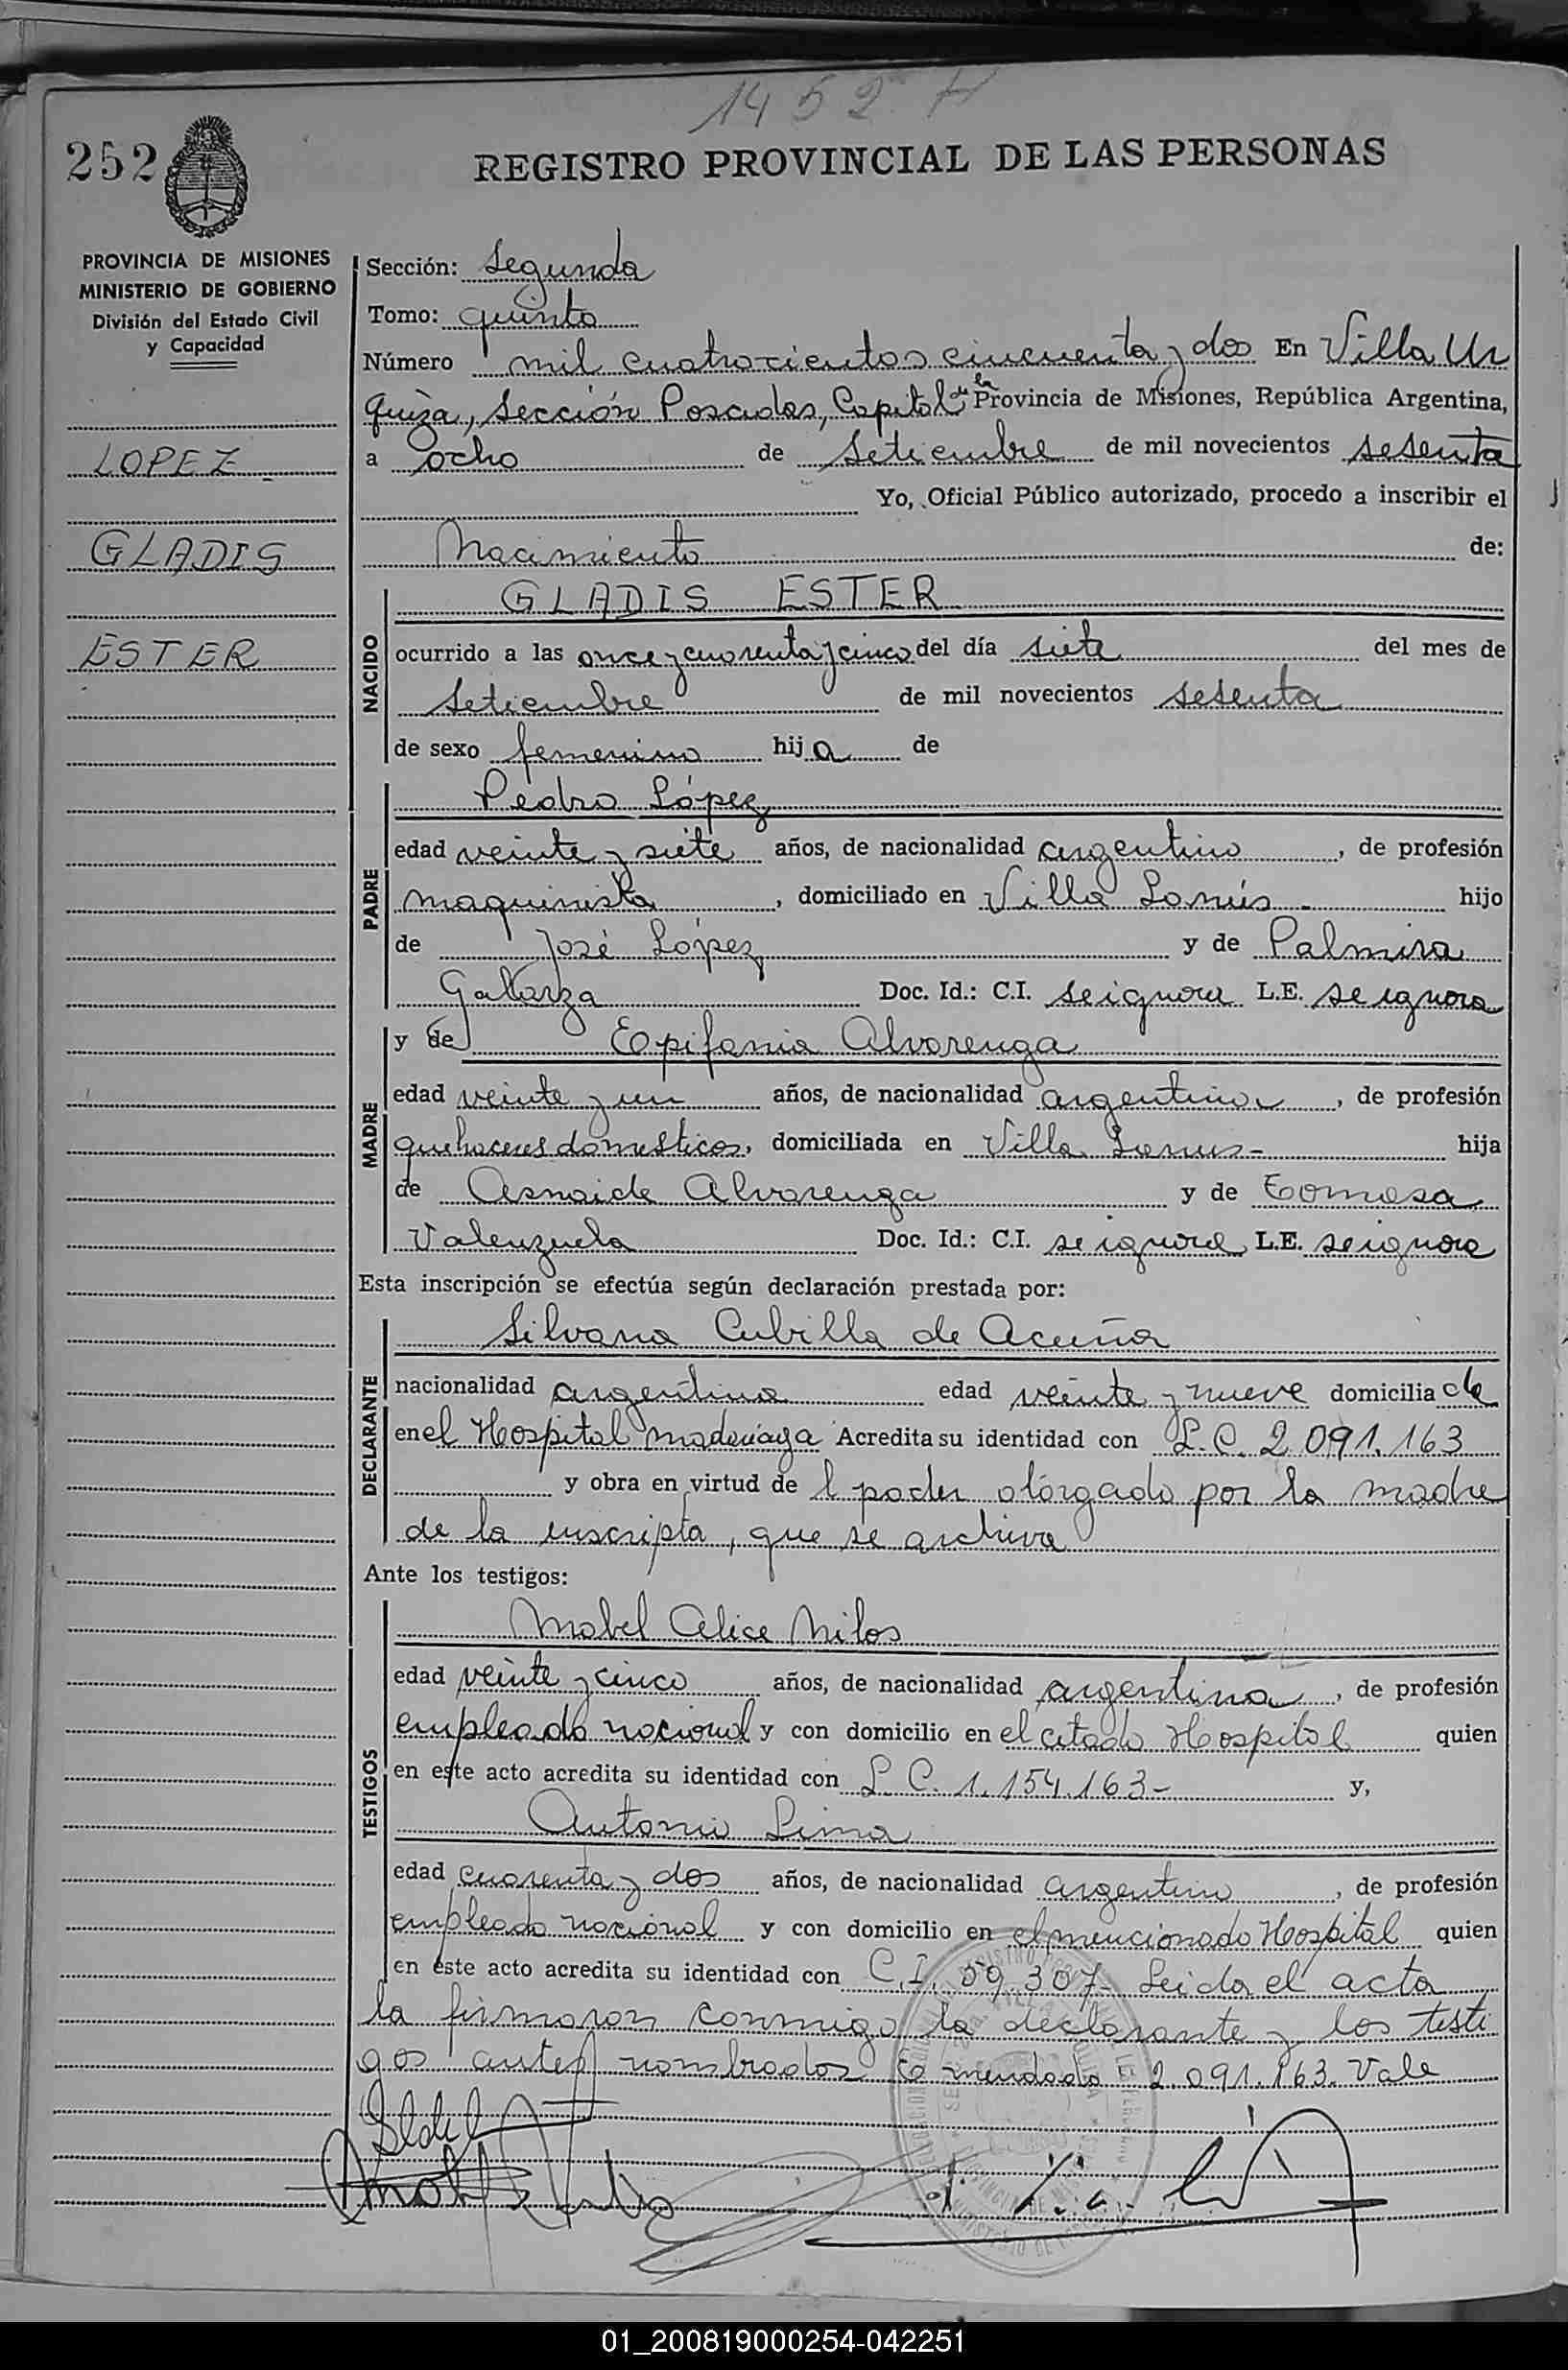 1452 H
252
REGISTRO PROVINCIAL DE LAS PERSONAS
PROVINCIA DE MISIONES
MINISTERIO DE GOBIERNO
División del Estado Civil
y Capacidad
LOPEZ
GLADIS
ESTER
Sección: Segunda
Tomo: quinto
Número mil cuatrocientos cincuenta y dos En Villa Ur
quiza, Sección Posadas, Capital de la Provincia de Misiones, República Argentina,
a ocho de Setiembre de mil novecientos sesenta
Yo, Oficial Público autorizado, procedo a inscribir el
Nacimiento de:
NACIDO
GLADIS ESTER
ocurrido a las once y cuarenta y cinco del día siete del mes de
Setiembre de mil novecientos sesenta
de sexo femenino hija de
PADRE
Pedro López
edad veinte y siete años, de nacionalidad argentino, de profesión
maquinista, domiciliado en Villa Lanús - hijo
de José López y de Palmira
Galarza Doc. Id.: C.I. se ignora L.E. se ignora
MADRE
y de Epifania Alvarenga
edad veinte y un años, de nacionalidad argentina, de profesión
quehaceres domesticos, domiciliada en Villa Lanus - hija
de Alvarenga y de Tomasa
Valenzuela Doc. Id.: C.I. se ignora L.E. se ignora
Esta inscripción se efectúa según declaración prestada por:
DECLARANTE
Silvana Cubilla de Acuña
nacionalidad argentina edad veinte y nueve domiciliada
en el Hospital Madariaga Acredita su identidad con L.C. 2.091.163
y obra en virtud de l poder otorgado por la madre
de la inscripta, que se archiva
Ante los testigos:
TESTIGOS
Mabel Alice Milos
edad veinte y cinco años, de nacionalidad argentina, de profesión
empleada nacional y con domicilio en el citado Hospital quien
en este acto acredita su identidad con L.C. 1.154.163- y,
Antonio Lima
edad cuarenta y dos años, de nacionalidad argentino, de profesión
empleado nacional y con domicilio en el mencionado Hospital quien
en este acto acredita su identidad con C.I. 59.307- Leida el acta
la firmaron conmigo la declarante y los testi
gos antes nombrados Emendado 2.091.163. Vale
01_200819000254-042251